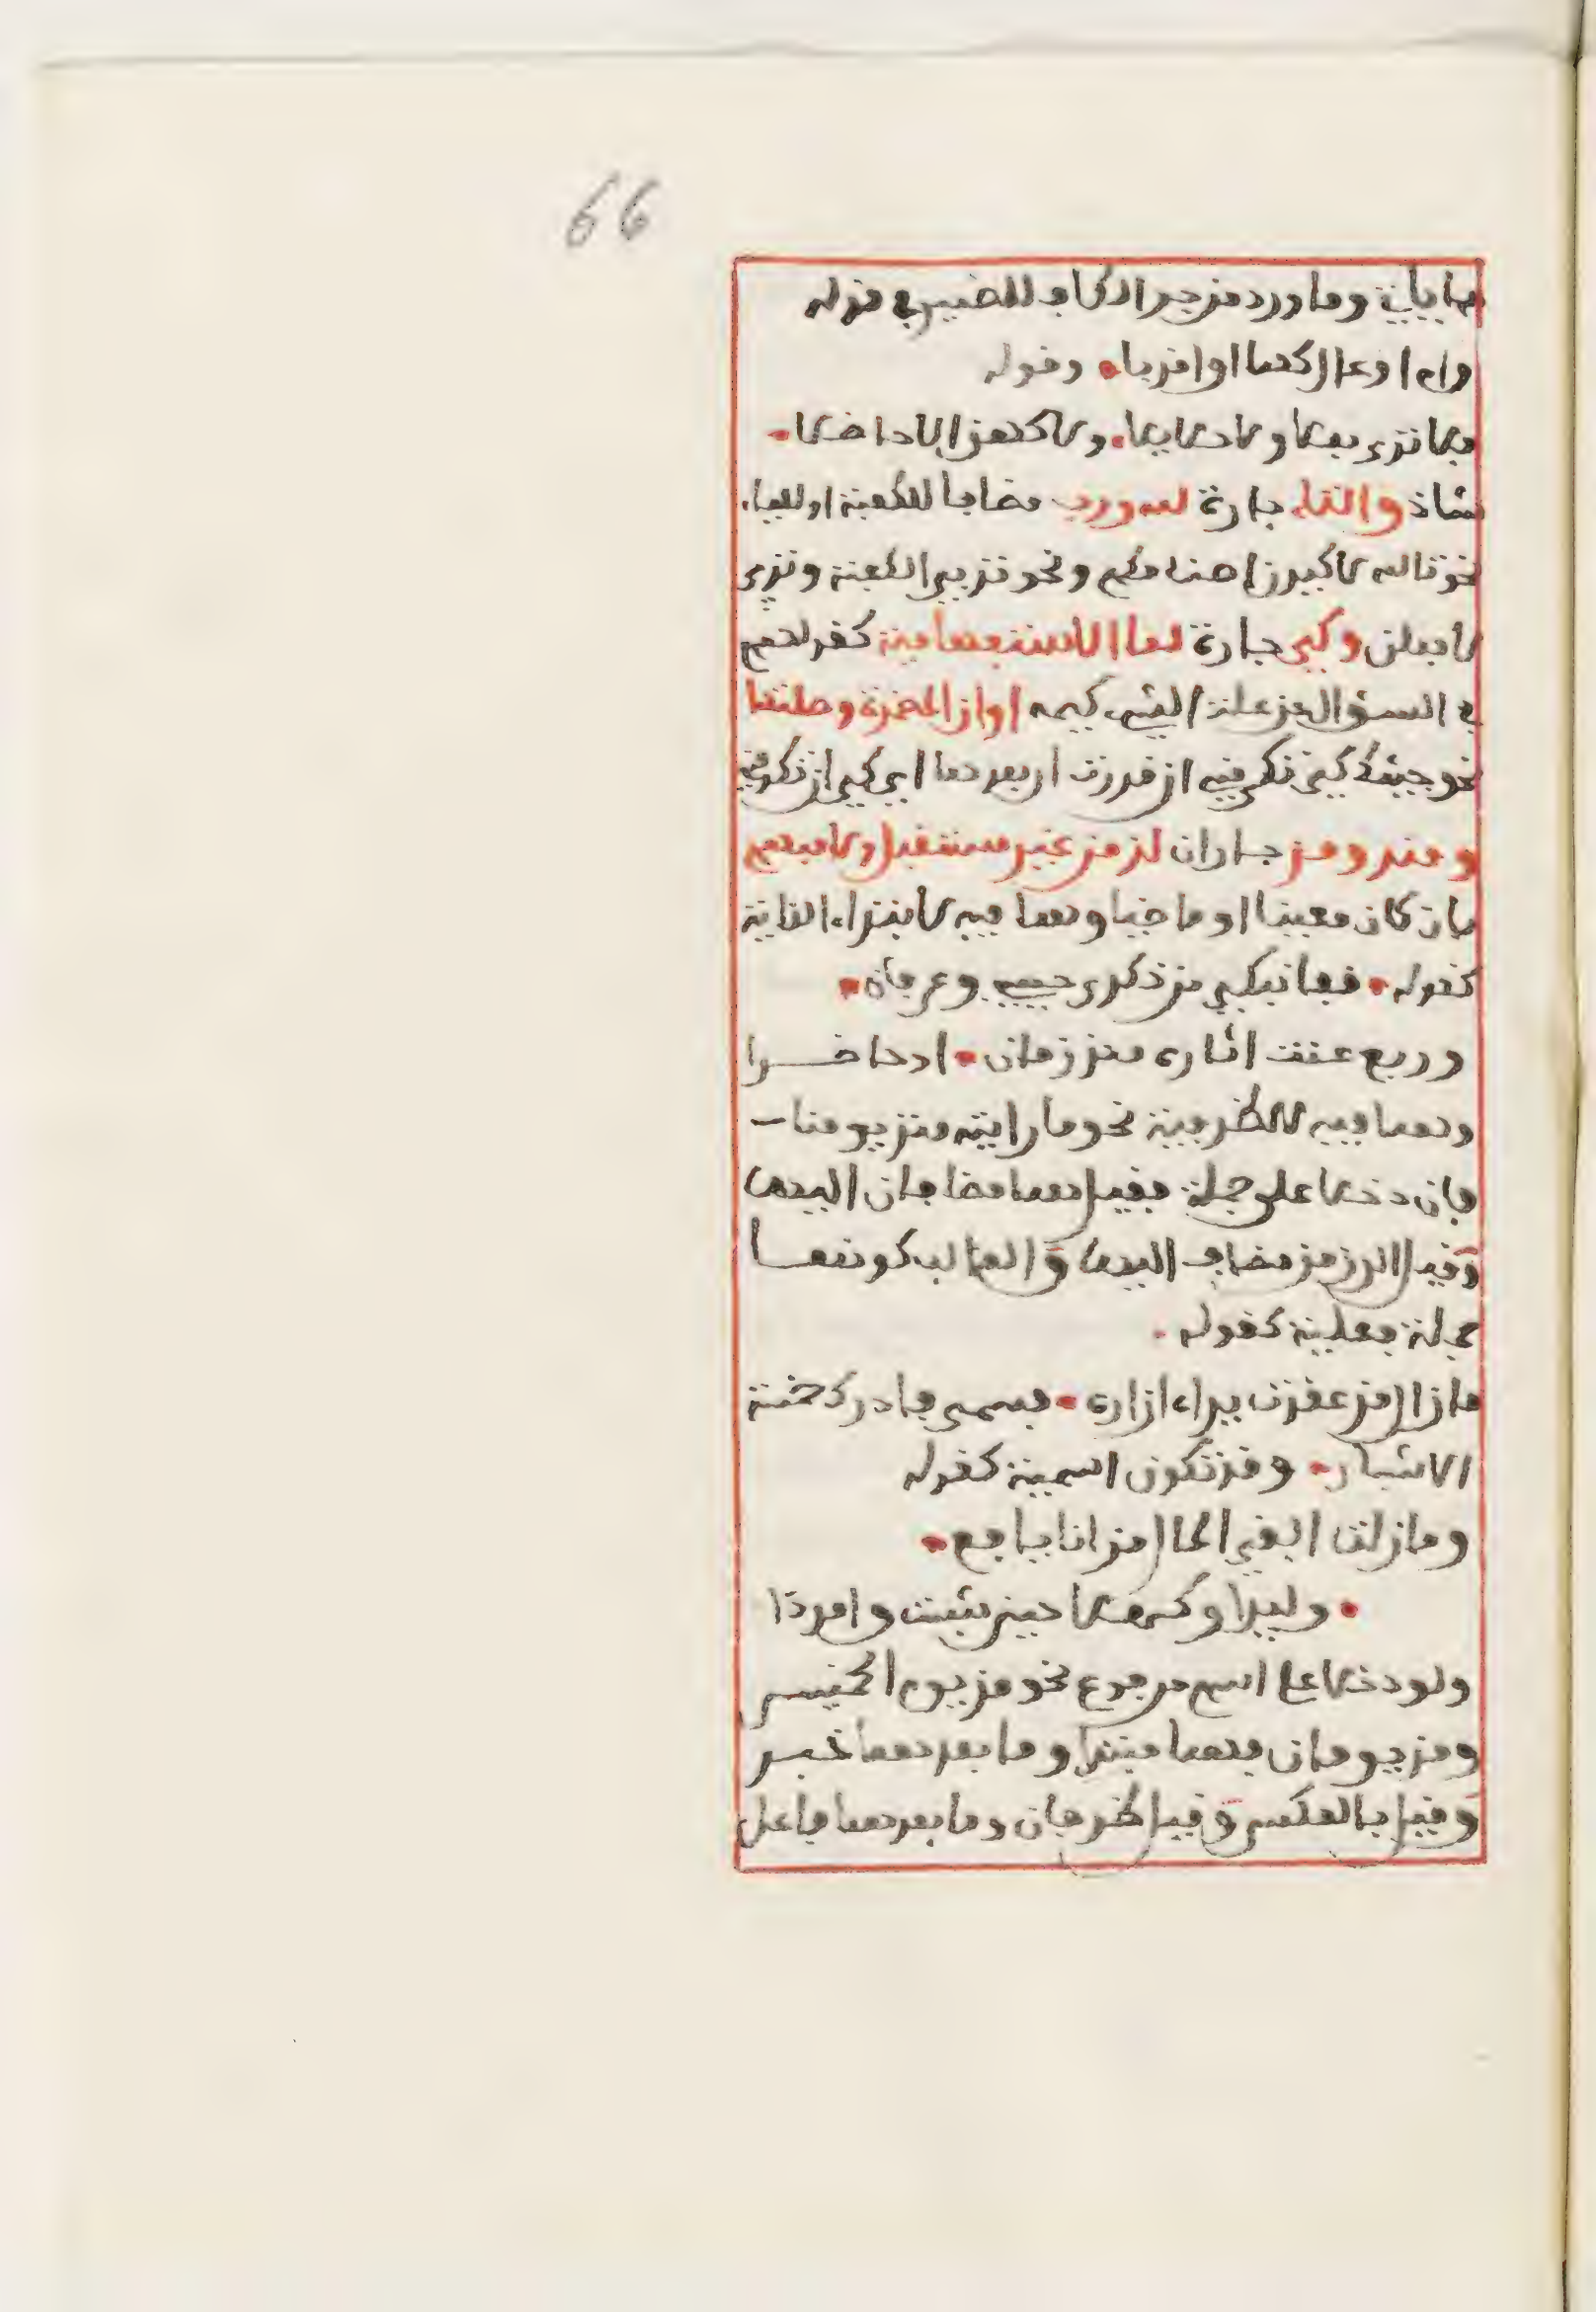 66
وما ورد من جر الكاف للضمير في قوله
وام اوعال كها او اقربا • وقوله
فلا ترى بعلا ولا حلايلا • كه ولا كهن الا حاظلا •
فشاذ والتاء جارة لله ورب مضافا للكعبة او للياء
نحو تالله لاكيدن اصنامكم ونحو ترب الكعبة وتربي
لافعلن وكي جارة لما الاستفهامية كقولهم
في السؤال عن علة الشيء كيمه او ان المضمرة وصلتها
نحو جئتك كي تكرمني ان قدرت ان بعدها اي كي ان تكرمني
ومنذ ومذ جاران لزمن غير مستقبل ولا مبهم
فان كان معينا او ماضيا وهما فيه لابتداء الغاية
كقوله • قفا نبك من ذكرى حبيب وعرفان •
وربع عفت اثاره منذ زمان • او حاضرا
وهما فيه للظرفية نحو ما رايته منذ يومنا
فان دخلا على جملة فقيل هما مضافان اليها
وقيل الزمن مضاف اليها والغالب كونها
جملة فعلية كقوله •
ما زال مذ عقدت يداه ازاره • فسمى فادرك خمسة
الاشبار • وقد تكون اسمية كقوله
وما زلت ابغي المال مذ انا يافع •
• وليدا وكهلا حين شبت وامردا
ولو دخلا على اسم مرفوع نحو مذ يوم الخميس
ومذ يومان فهما مبتدا وما بعدهما خبر
وقيل بالعكس وقيل ظرفان وما بعدهما فاعل